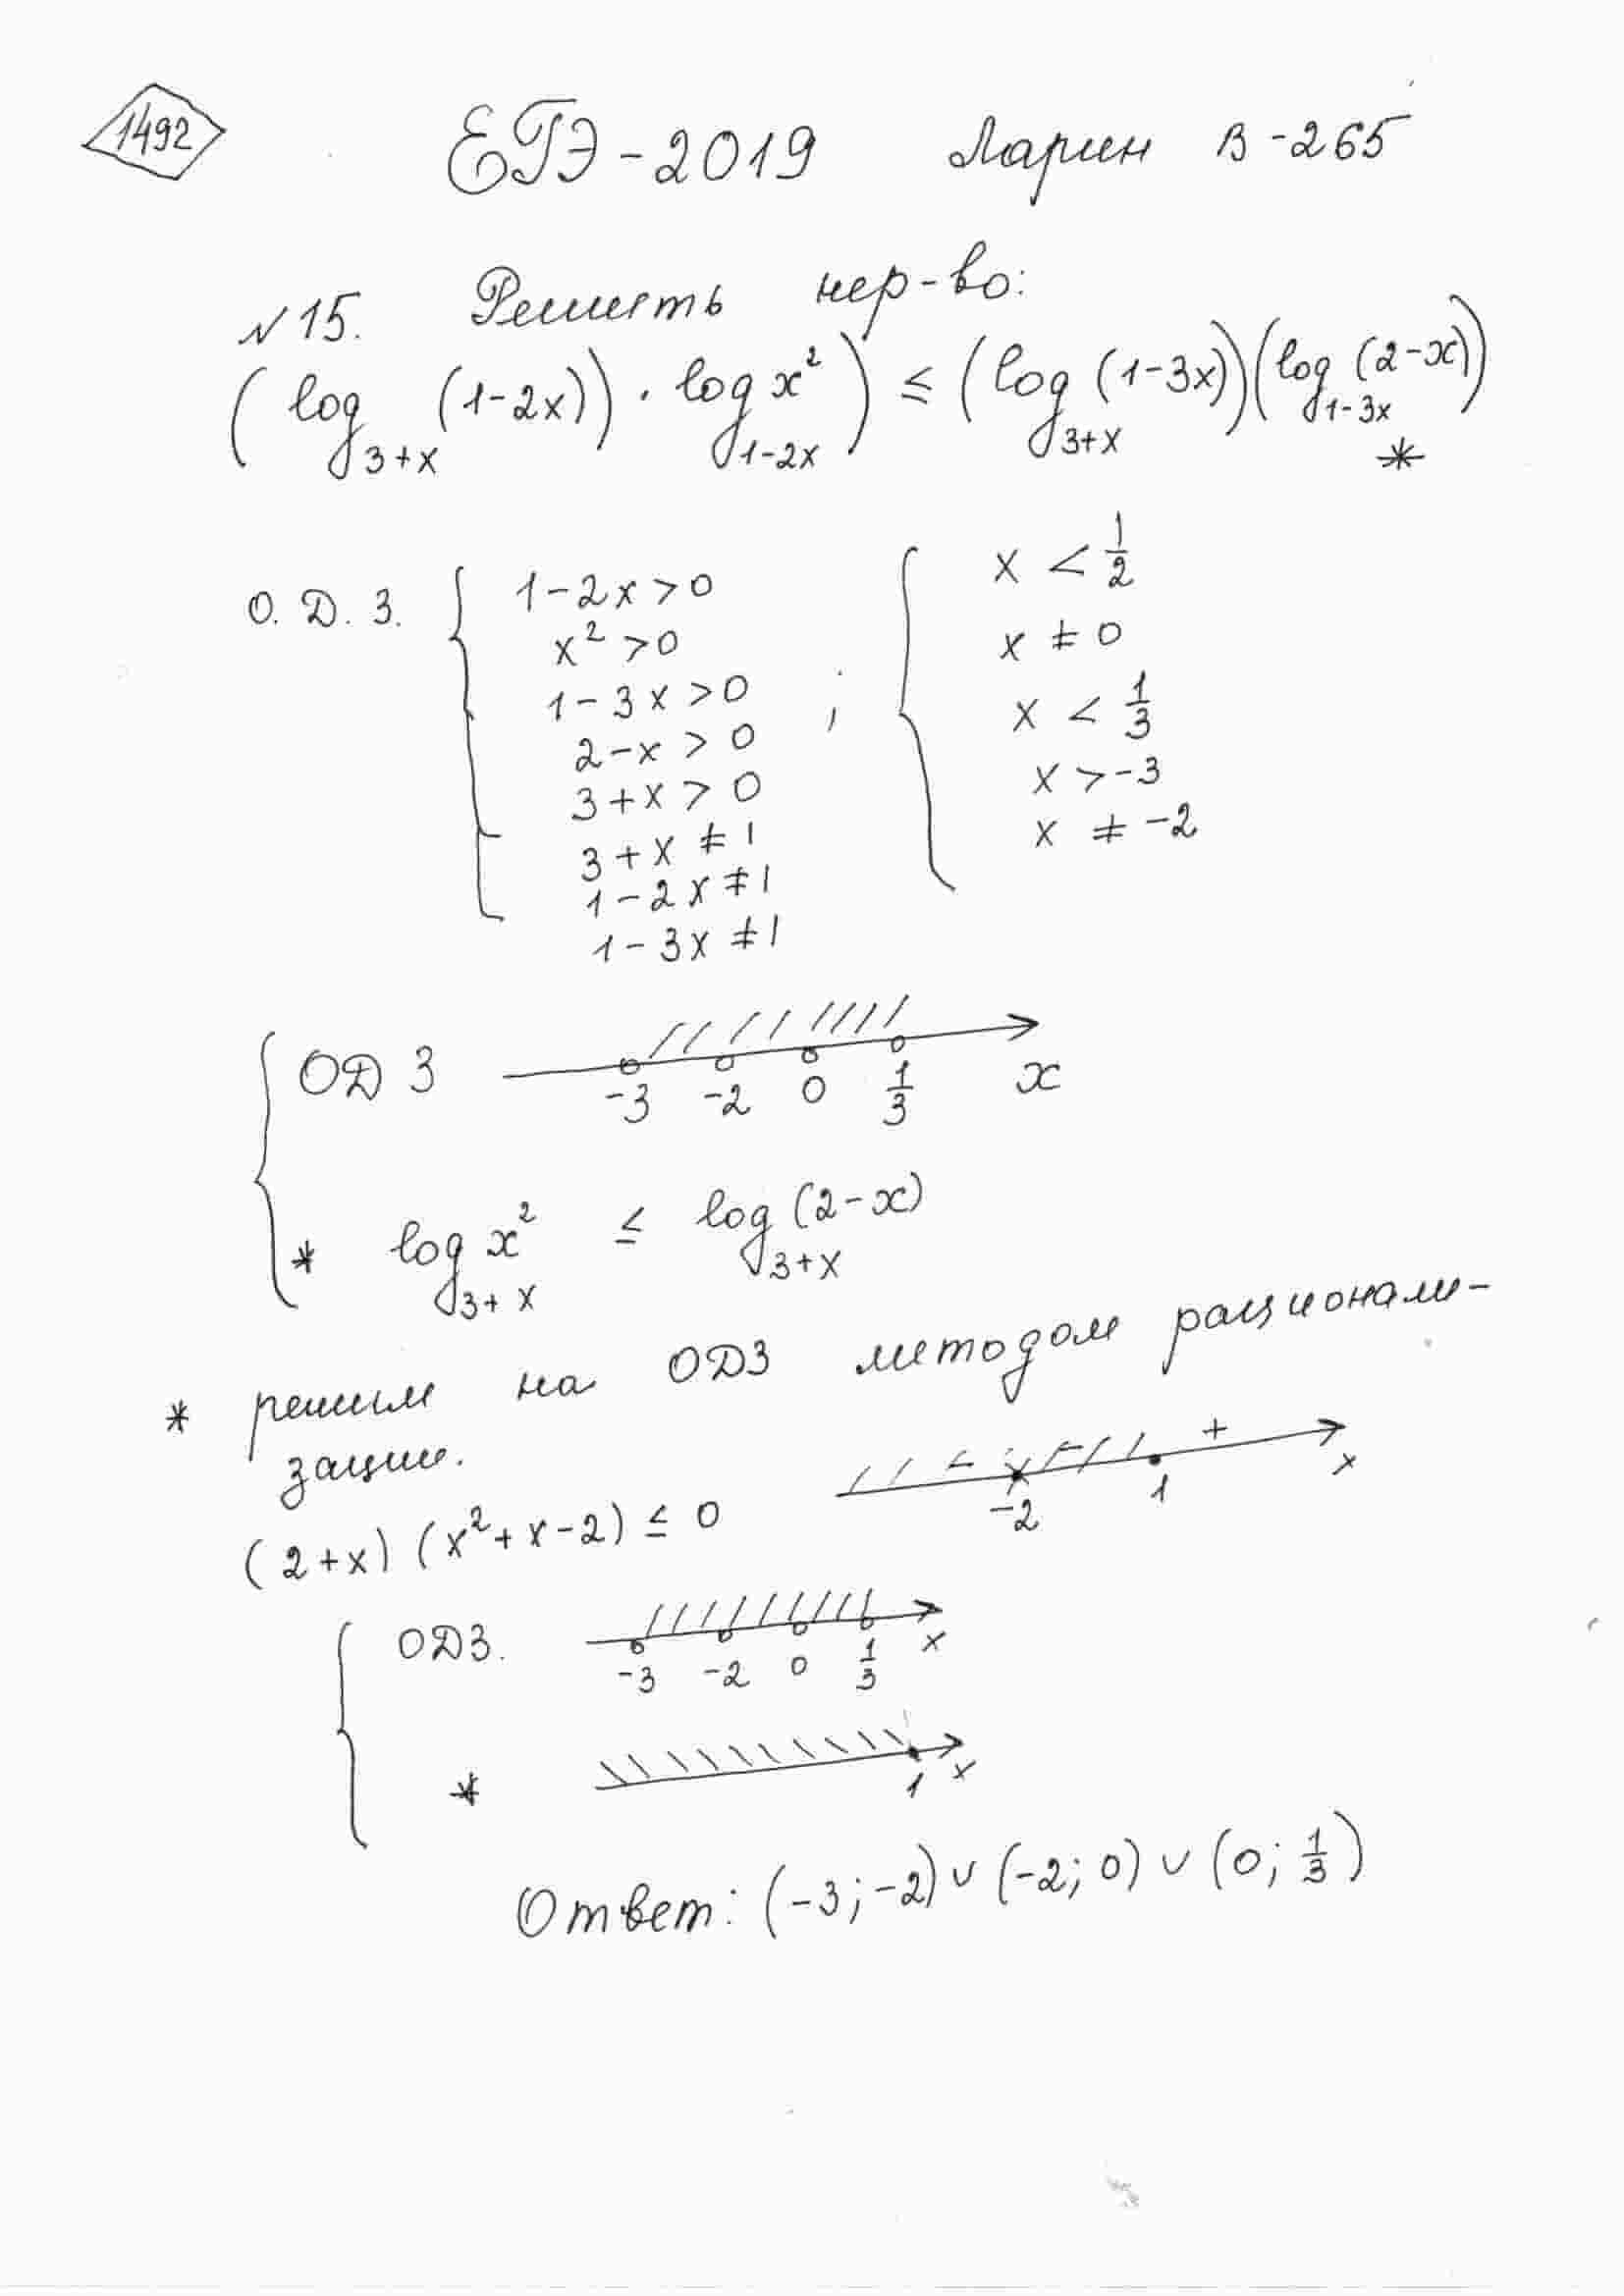 1492
ЕГЭ-2019 Ларин В-265
№15. Решить нер-во:
(log_{3+x} (1-2x)) · log_{1-2x} x²) ≤ (log_{3+x} (1-3x)) (log_{1-3x} (2-x))
*
О.Д.З. { 1-2x>0 ; { x < 1/2
x²>0 x ≠ 0
1-3x>0 x < 1/3
2-x>0 x > -3
3+x>0 x ≠ -2
3+x≠1
1-2x≠1
1-3x≠1
{ ОДЗ -3 -2 0 1/3 x
* log_{3+x} x² ≤ log_{3+x} (2-x)
* решим на ОДЗ методом рационали-
зации.
(2+x)(x²+x-2) ≤ 0 - - + -2 1 x
{ ОДЗ. -3 -2 0 1/3 x
* 1 x
Ответ: (-3; -2) ∪ (-2; 0) ∪ (0; 1/3)